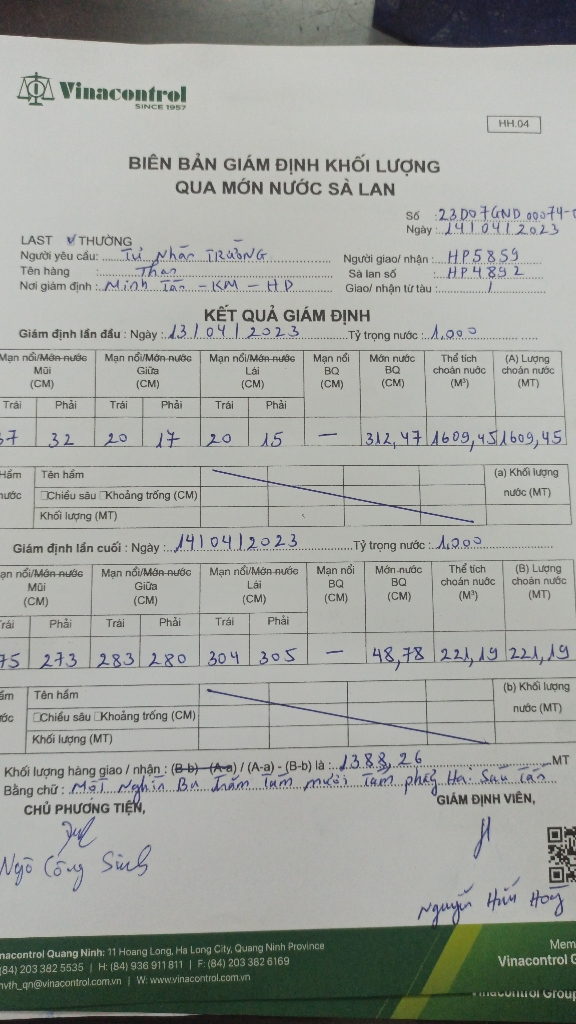 Vinacontrol
SINCE 1957
HH.04
BIÊN BẢN GIÁM ĐỊNH KHỐI LƯỢNG
QUA MỚN NƯỚC SÀ LAN
Số :23D07GND 00074-
Ngày : 14/04/2023
LAST THƯỜNG
Người yêu cầu: Tư Nhân TRƯỜNG Người giao/ nhận : HP5859
Tên hàng : Than Sà lan số : HP4892
Nơi giám định : Minh Tân - KM - HD Giao/ nhận từ tàu : /
KẾT QUẢ GIÁM ĐỊNH
Giám định lần đầu : Ngày : 13/04/2023 Tỷ trọng nước : 1,000
Mạn nổi/Mớn nước Mũi (CM) Mạn nổi/Mớn nước Giữa (CM) Mạn nổi/Mớn nước Lái (CM) Mạn nổi BQ (CM) Mớn nước BQ (CM) Thể tích choán nước (M³) (A) Lượng choán nước (MT)
Trái Phải Trái Phải Trái Phải
37 32 20 17 20 15 — 312,47 1609,45 1609,45
Hầm nước Tên hầm (a) Khối lượng nước (MT)
□Chiều sâu □Khoảng trống (CM)
Khối lượng (MT)
Giám định lần cuối : Ngày : 14/04/2023 Tỷ trọng nước : 1,000
Mạn nổi/Mớn nước Mũi (CM) Mạn nổi/Mớn nước Giữa (CM) Mạn nổi/Mớn nước Lái (CM) Mạn nổi BQ (CM) Mớn nước BQ (CM) Thể tích choán nước (M³) (B) Lượng choán nước (MT)
Trái Phải Trái Phải Trái Phải
75 273 283 280 304 305 — 48,78 221,19 221,19
Tên hầm (b) Khối lượng nước (MT)
□Chiều sâu □Khoảng trống (CM)
Khối lượng (MT)
Khối lượng hàng giao / nhận : (B-b) - (A-a) / (A-a) - (B-b) là : 1388,26 MT
Bằng chữ : Một Nghìn Ba Trăm Tám mươi Tám phẩy Hai Sáu Tấn
CHỦ PHƯƠNG TIỆN, GIÁM ĐỊNH VIÊN,
Ngô Công Sinh
Nguyễn
Vinacontrol Quang Ninh: 11 Hoang Long, Ha Long City, Quang Ninh Province
(84) 203 382 5535 | H: (84) 936 911 811 | F: (84) 203 382 6169
nvth_qn@vinacontrol.com.vn | W: www.vinacontrol.com.vn
Mem
Vinacontrol G
Vinacontrol Group